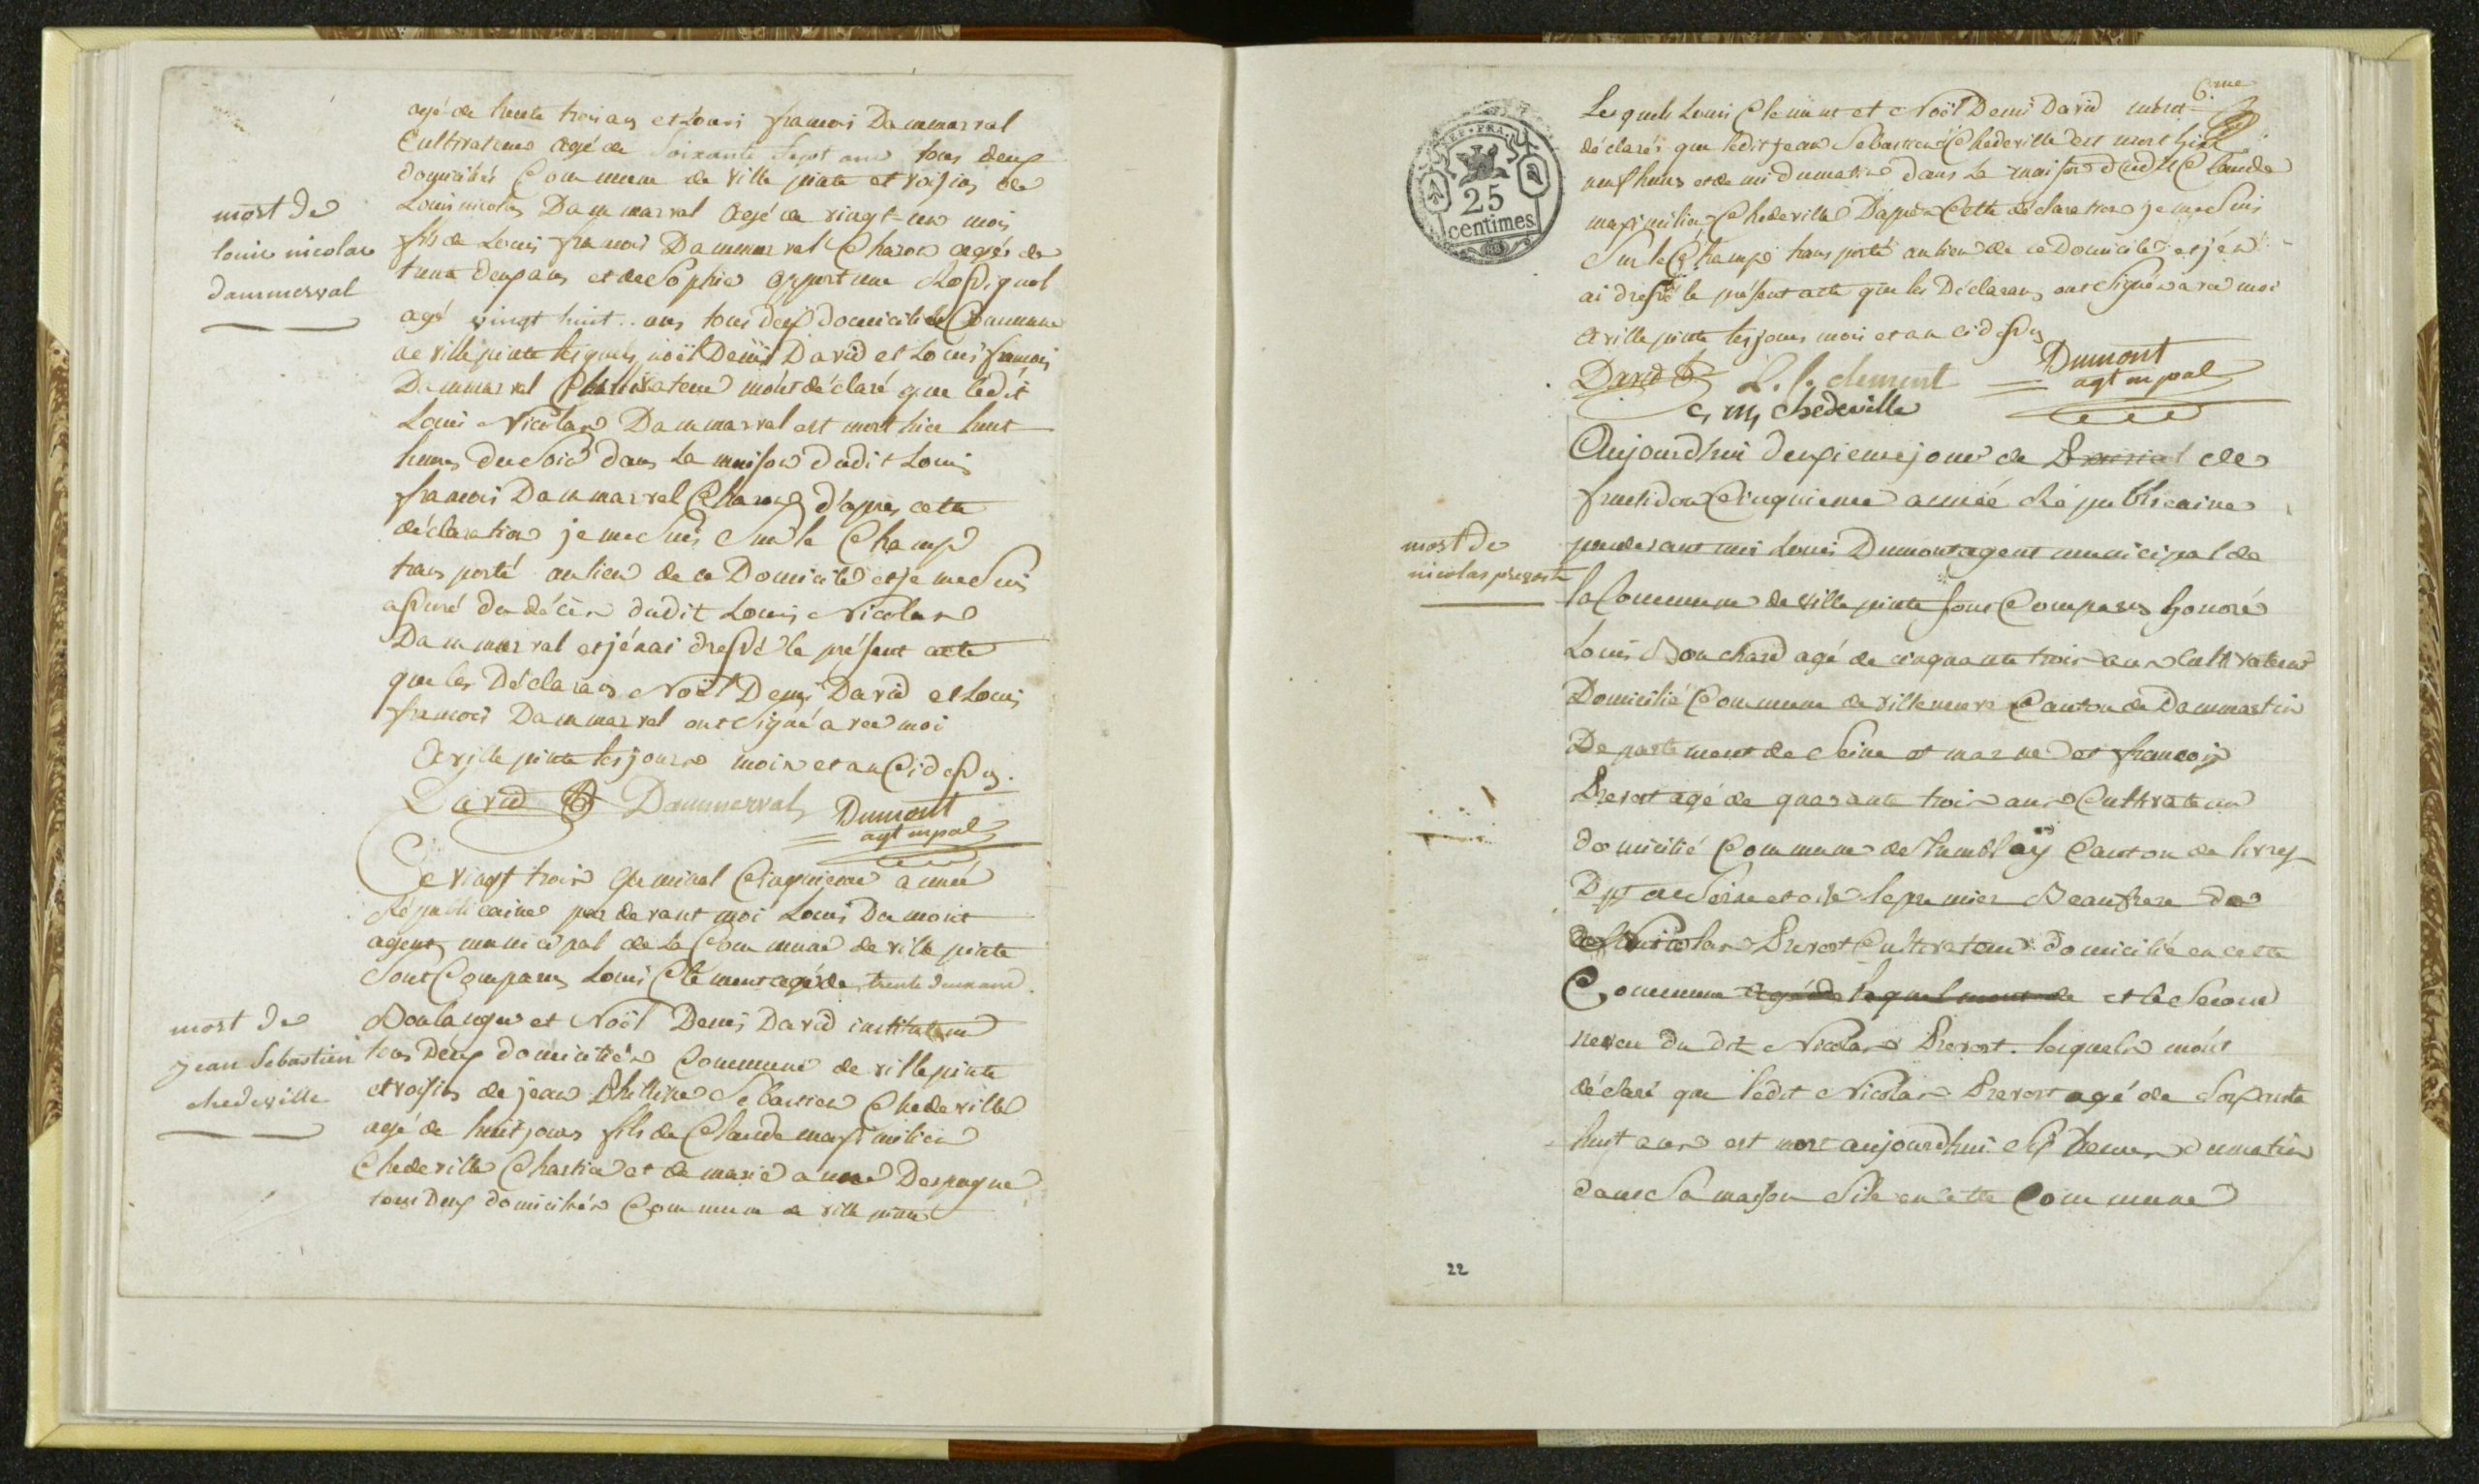 agé de trente trois ans et Louis francois Dammarval
Cultivateur agé de Soixante Sept ans tous deux
domiciliés Commune de ville pinte et voisins de
mort de
louis nicolas
dammerval
Louis nicolas Dammarval agé de vingt-un mois
fils de Louis francois Dammarval Charon agé de
trente deux ans et de Sophie opportune Rossignol
agé vingt huit .. ans tous deux domiciliés Commune
de ville pinte lesquels noël Denis David et Louis francois
Dammarval Cultivateur m'ont déclaré que ledit
Louis Nicolas Dammarval est mort hier huit
heures du Soir dans la maison dudit Louis
francois Dammarval Charon d'apres cette
déclaration je me suis Sur le Champ
transporté au lieu de ce Domicile et je me Suis
assuré du décès dudit Louis Nicolas
Dammarval et j'en ai dressé le présent acte
que les Déclarans Noël Denis David et Louis
francois Dammarval ont Signé avec moi
A ville pinte les jours mois et an Ci dessus.
David Dammerval Dumont
agt mpal
Ce vingt trois Germinal Cinquieme année
Républicaine par devant moi Louis Dumont
agent municipal de la Commune de ville pinte
Sont Comparus Louis Clément agé de trente deux ans
mort de
jean Sebastien
chedeville
Boulanger et Noël Denis David instituteur
tous Deux domiciliés Commune de ville pinte
et voisins de jean Sebastien Chedeville
agé de huit jours fils de Claude maximilien
Chedeville Chartier et de marie anne Despagne
tous Deux domiciliés Commune de ville pinte
6.me
Lesquels Louis Clement et Noël Denis David m'ont
déclarés que ledit jean Sebastien Chedeville est mort hier
neuf heures et demi du matin dans la maison dudit Claude
maximilien Chedeville D'apres Cette déclaration je me Suis
Sur le Champ transporté au lieu de ce Domicile et j'en
ai dressé le présent acte que les Déclarans ont Signé avec moi
A ville pinte les jours mois et an ci dessus
REP. FRA.
25
centimes
David L. clement Dumont
agt mpal
c, m, chedeville
Aujourdhui deuxieme jour de Prairial de
fructidor Cinquieme année Républicaine
mort de
nicolas prevost
pardevant moi Louis Dumont agent municipal de
la Commune de ville pinte sont Comparus honoré
Louis Bouchard agé de cinquante trois ans Cultivateur
Domicilié Commune de villeneuve Canton de Dammartin
Departement de Seine et marne et francois
Prevost agé de quarante trois ans Cultivateur
domicilié Commune de tremblay Canton de livry
Dpt de Seine et oise le premier Beaufrere de
Nicolas Prevost Cultivateur domicilié en cette
Commune agé de lequel et le Second
neveu du dit Nicolas Prevost. lesquels m'ont
déclaré que ledit Nicolas Prevost agé de Soixante
huit ans est mort aujourdhui Six heures du matin
dans Sa maison Sise en cette Commune
22